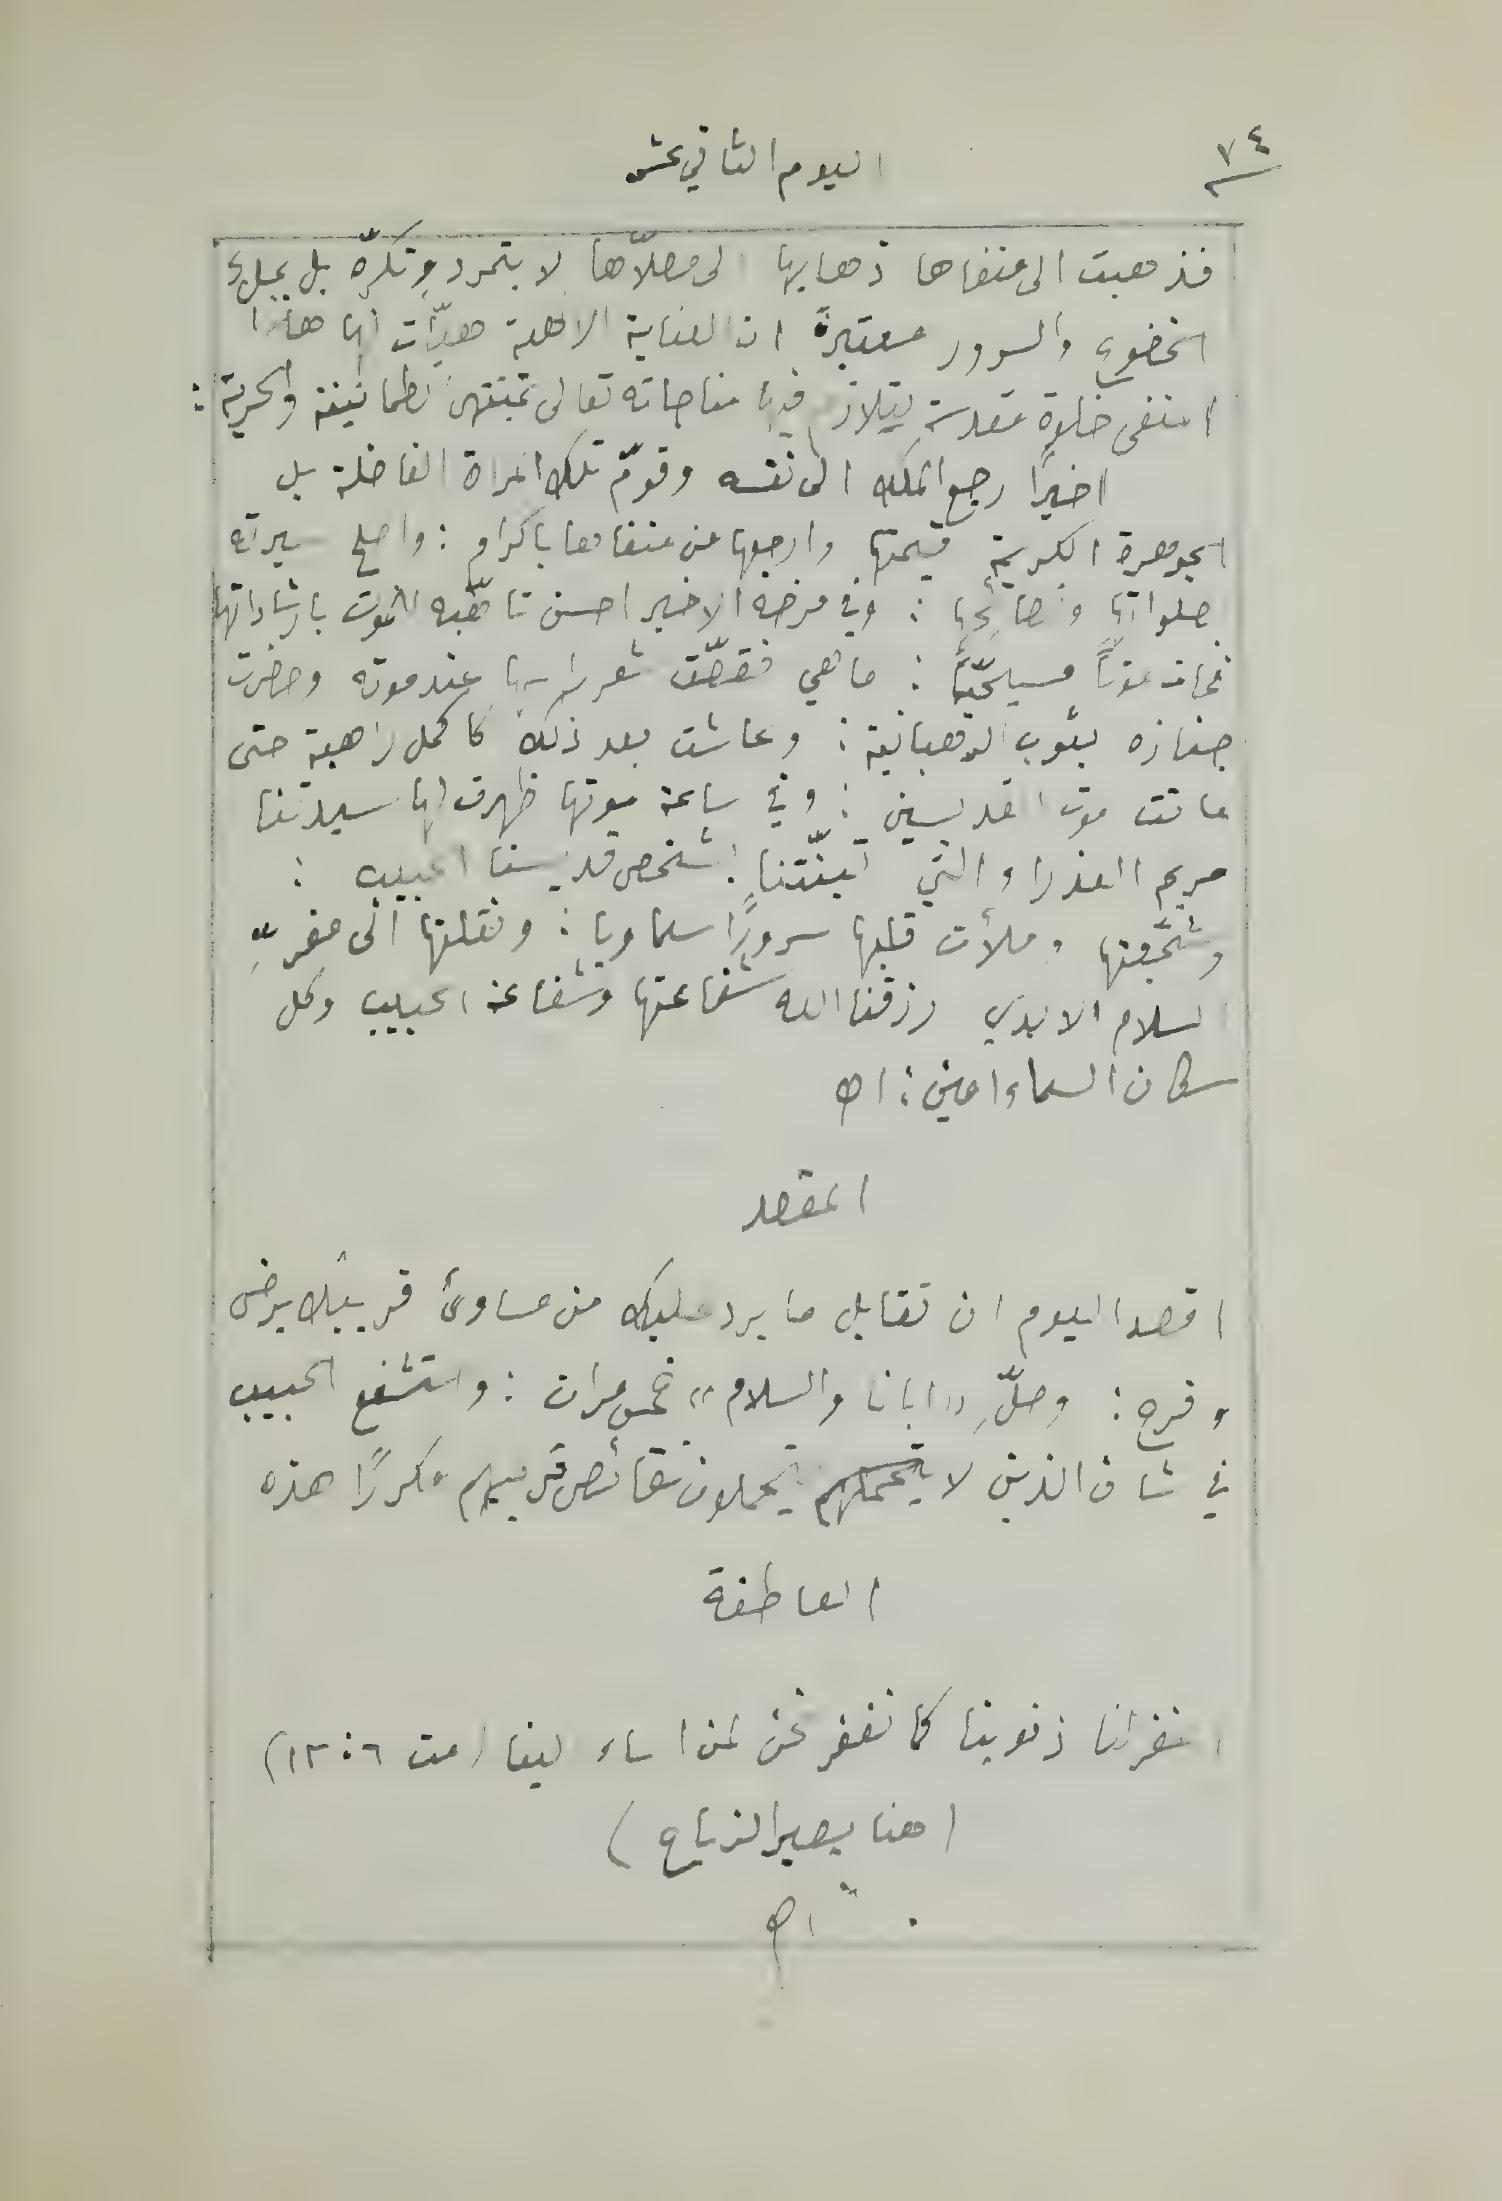 ٧٤
اليوم الثاني عشر
فذهبت الى منفاها ذهابها الى مصلّاها لا بتمرد وتكرّه بل بملء
الخضوع والسرور معتبرةً ان العناية الالهية هيّأت لها هذا
المنفى خلوة مقدسة ليتلازم فيها مناجاته تعالى بمنتهى الطمانينة والحرية :
اخيرًا رجع الملك الى نفسه وقوّم تلك المراة الفاضلة بل
الجوهرة الكريمة قيمتها وارجعها من منفاها باكرام : واصلح سيرته
بصلواتها ونصائحها : وفي مرضه الاخير احسن تاهّبه للموت بارشاداتها
فمات موتًا مسيحيًّا : ما هي فقصّت شعر راسها عند موته وحضرت
جنازه بثوب الرهبانية : وعاشت بعد ذلك كاكمل راهبة حتى
ماتت موت القديسين : وفي ساعة موتها ظهرت لها سيدتنا
مريم العذراء التي تبنّتنا بشخص قديسنا الحبيب :
وشجّعتها وملأت قلبها سرورًا سماويا : ونقلتها الى مقرّ
السلام الابدي رزقنا الله شفاعتها وشفاعة الحبيب وكل
سكان السماء امين : اھ
المقصد
اقصد اليوم ان تقابل ما يرد عليك من مساوئ قريبك برضى
وفرح : وصلِّ "ابانا والسلام" خمس مرات : واستشفع الحبيب
في شان الذين لا يتحملهم يحملون نقائص قريبهم مكررًا هذه
العاطفة
اغفر لنا ذنوبنا كما نغفر نحن لمن اساء الينا (مت ٦ : ١٢)
(هنا يصير الزياح)
اھ